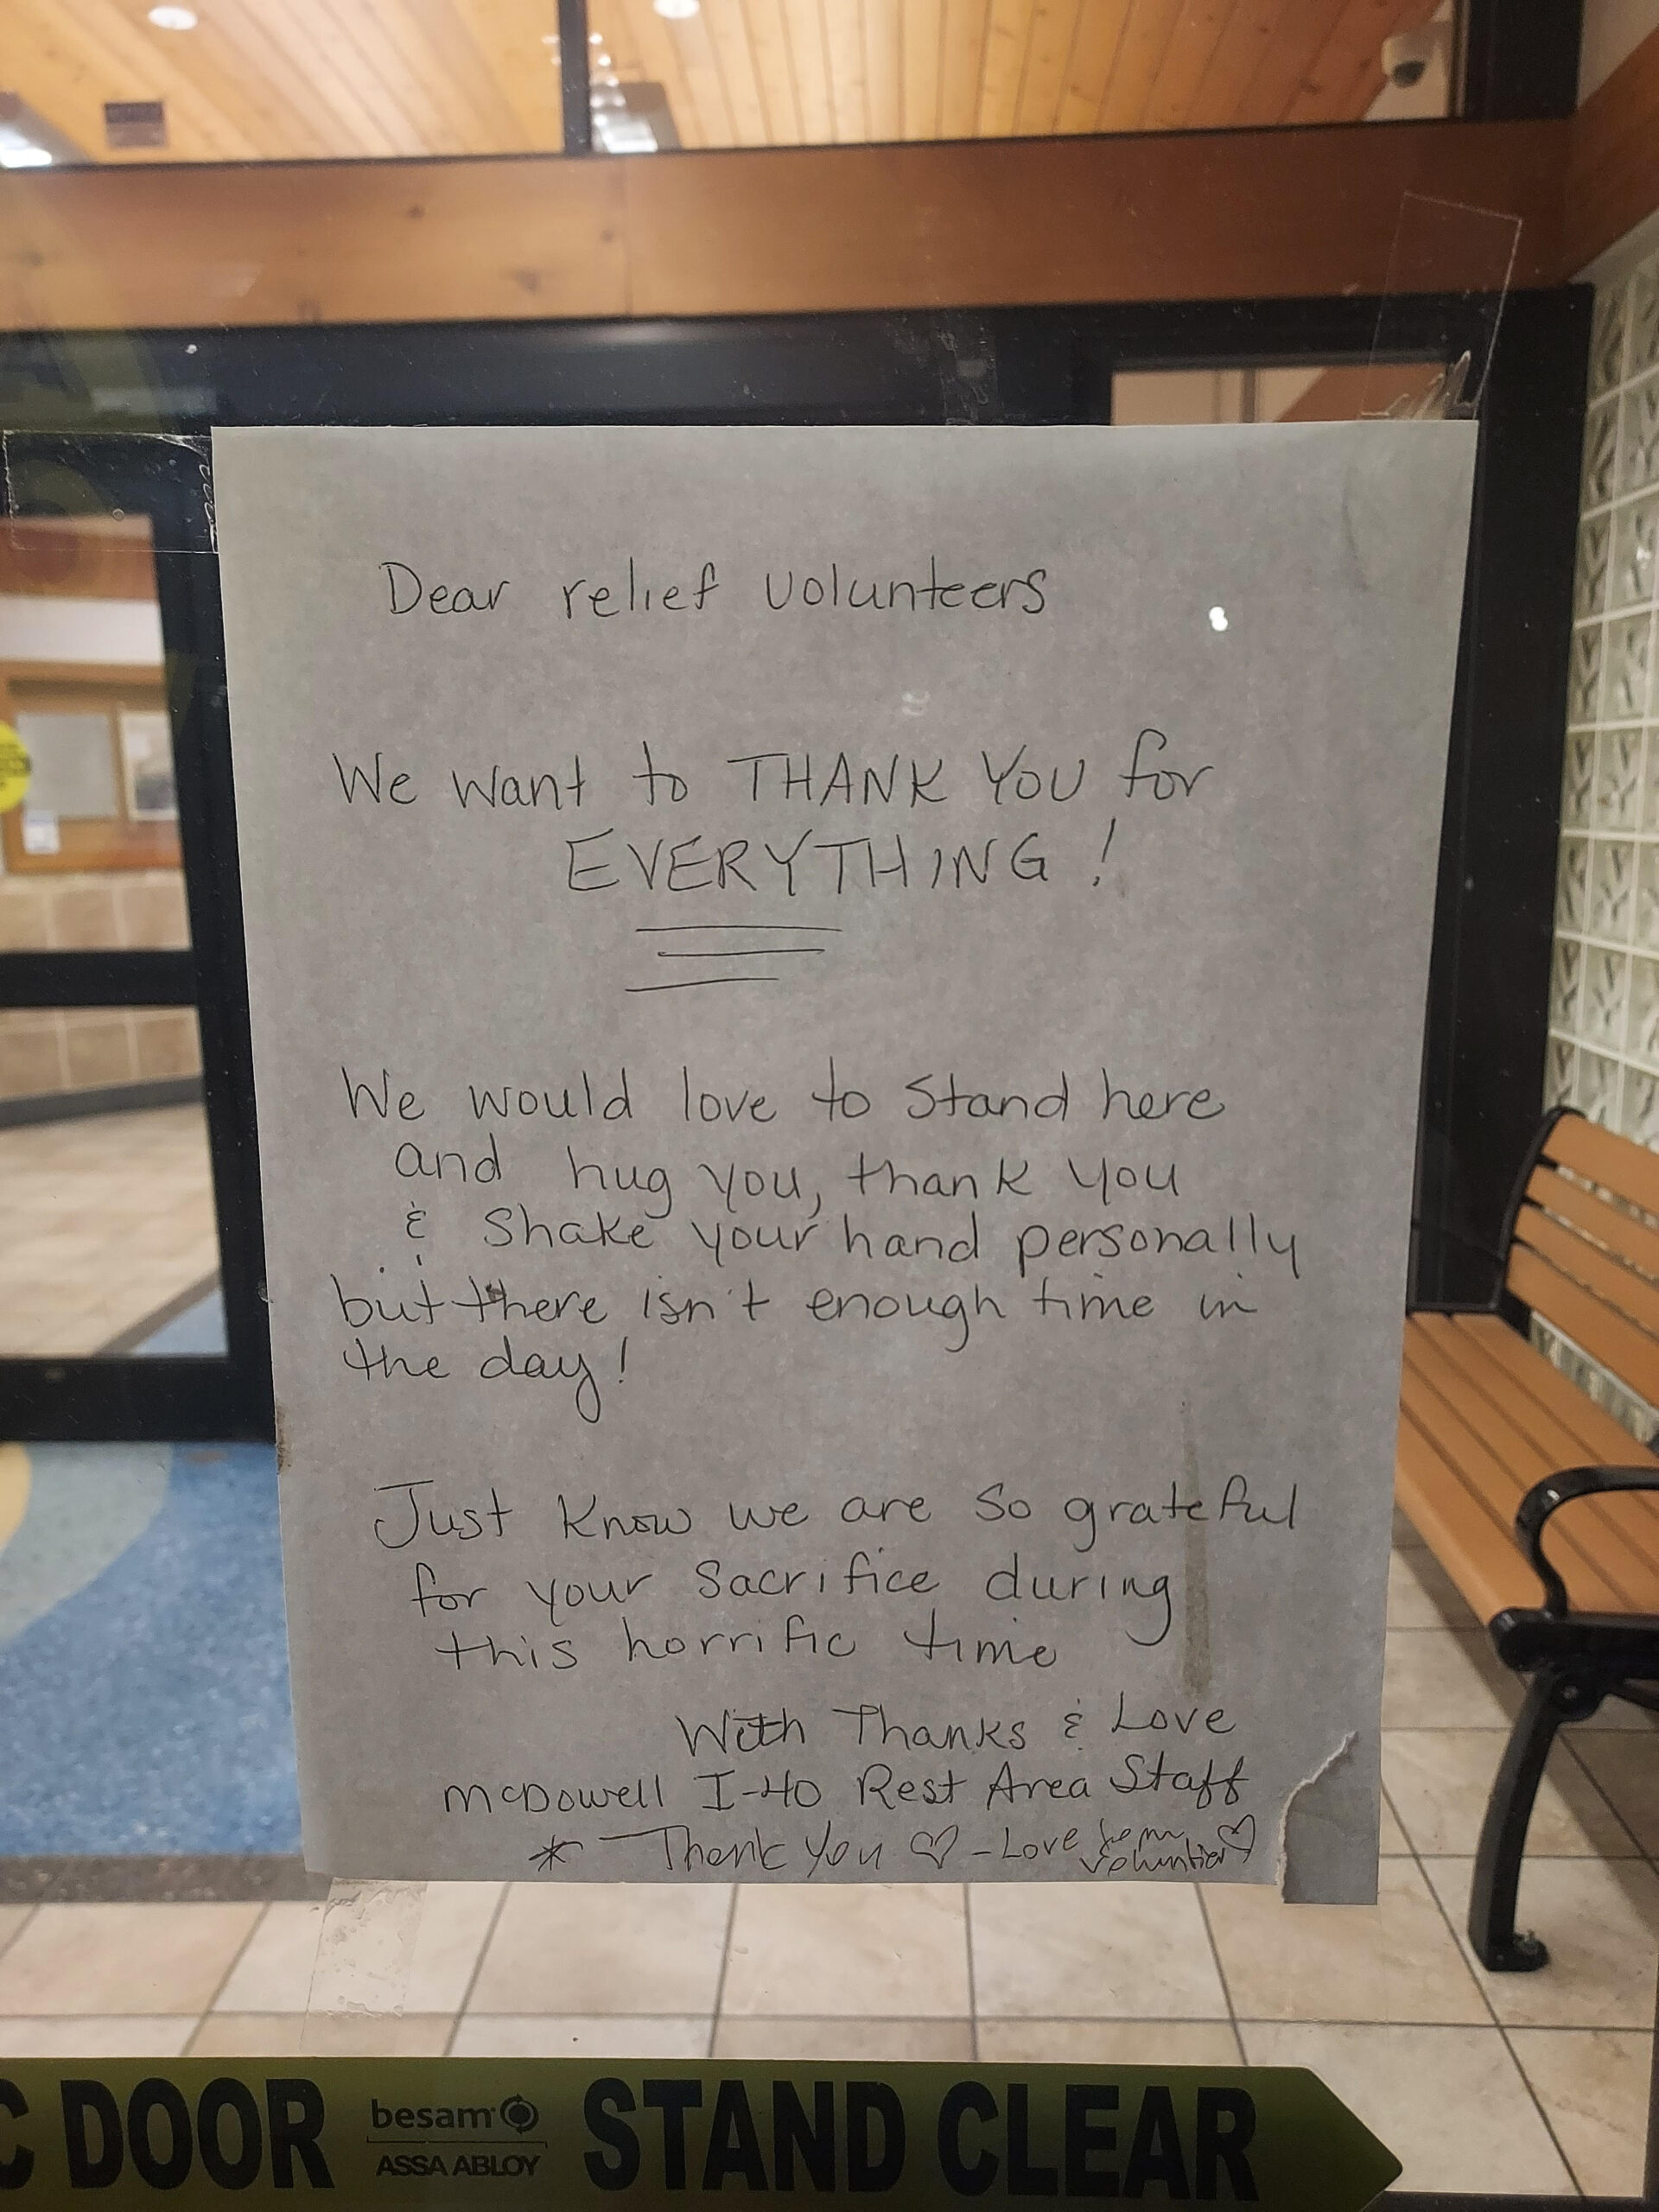 Dear relief volunteers
We want to THANK YOU for
EVERYTHING!
We would love to Stand here
and hug you, thank you
& Shake your hand personally
but there isn't enough time in
the day!
Just Know we are so grateful
for your Sacrifice during
this horrific time
With Thanks & Love
McDowell I-40 Rest Area Staff
* Thank You ♡ - Love
C DOOR besam ASSA ABLOY STAND CLEAR